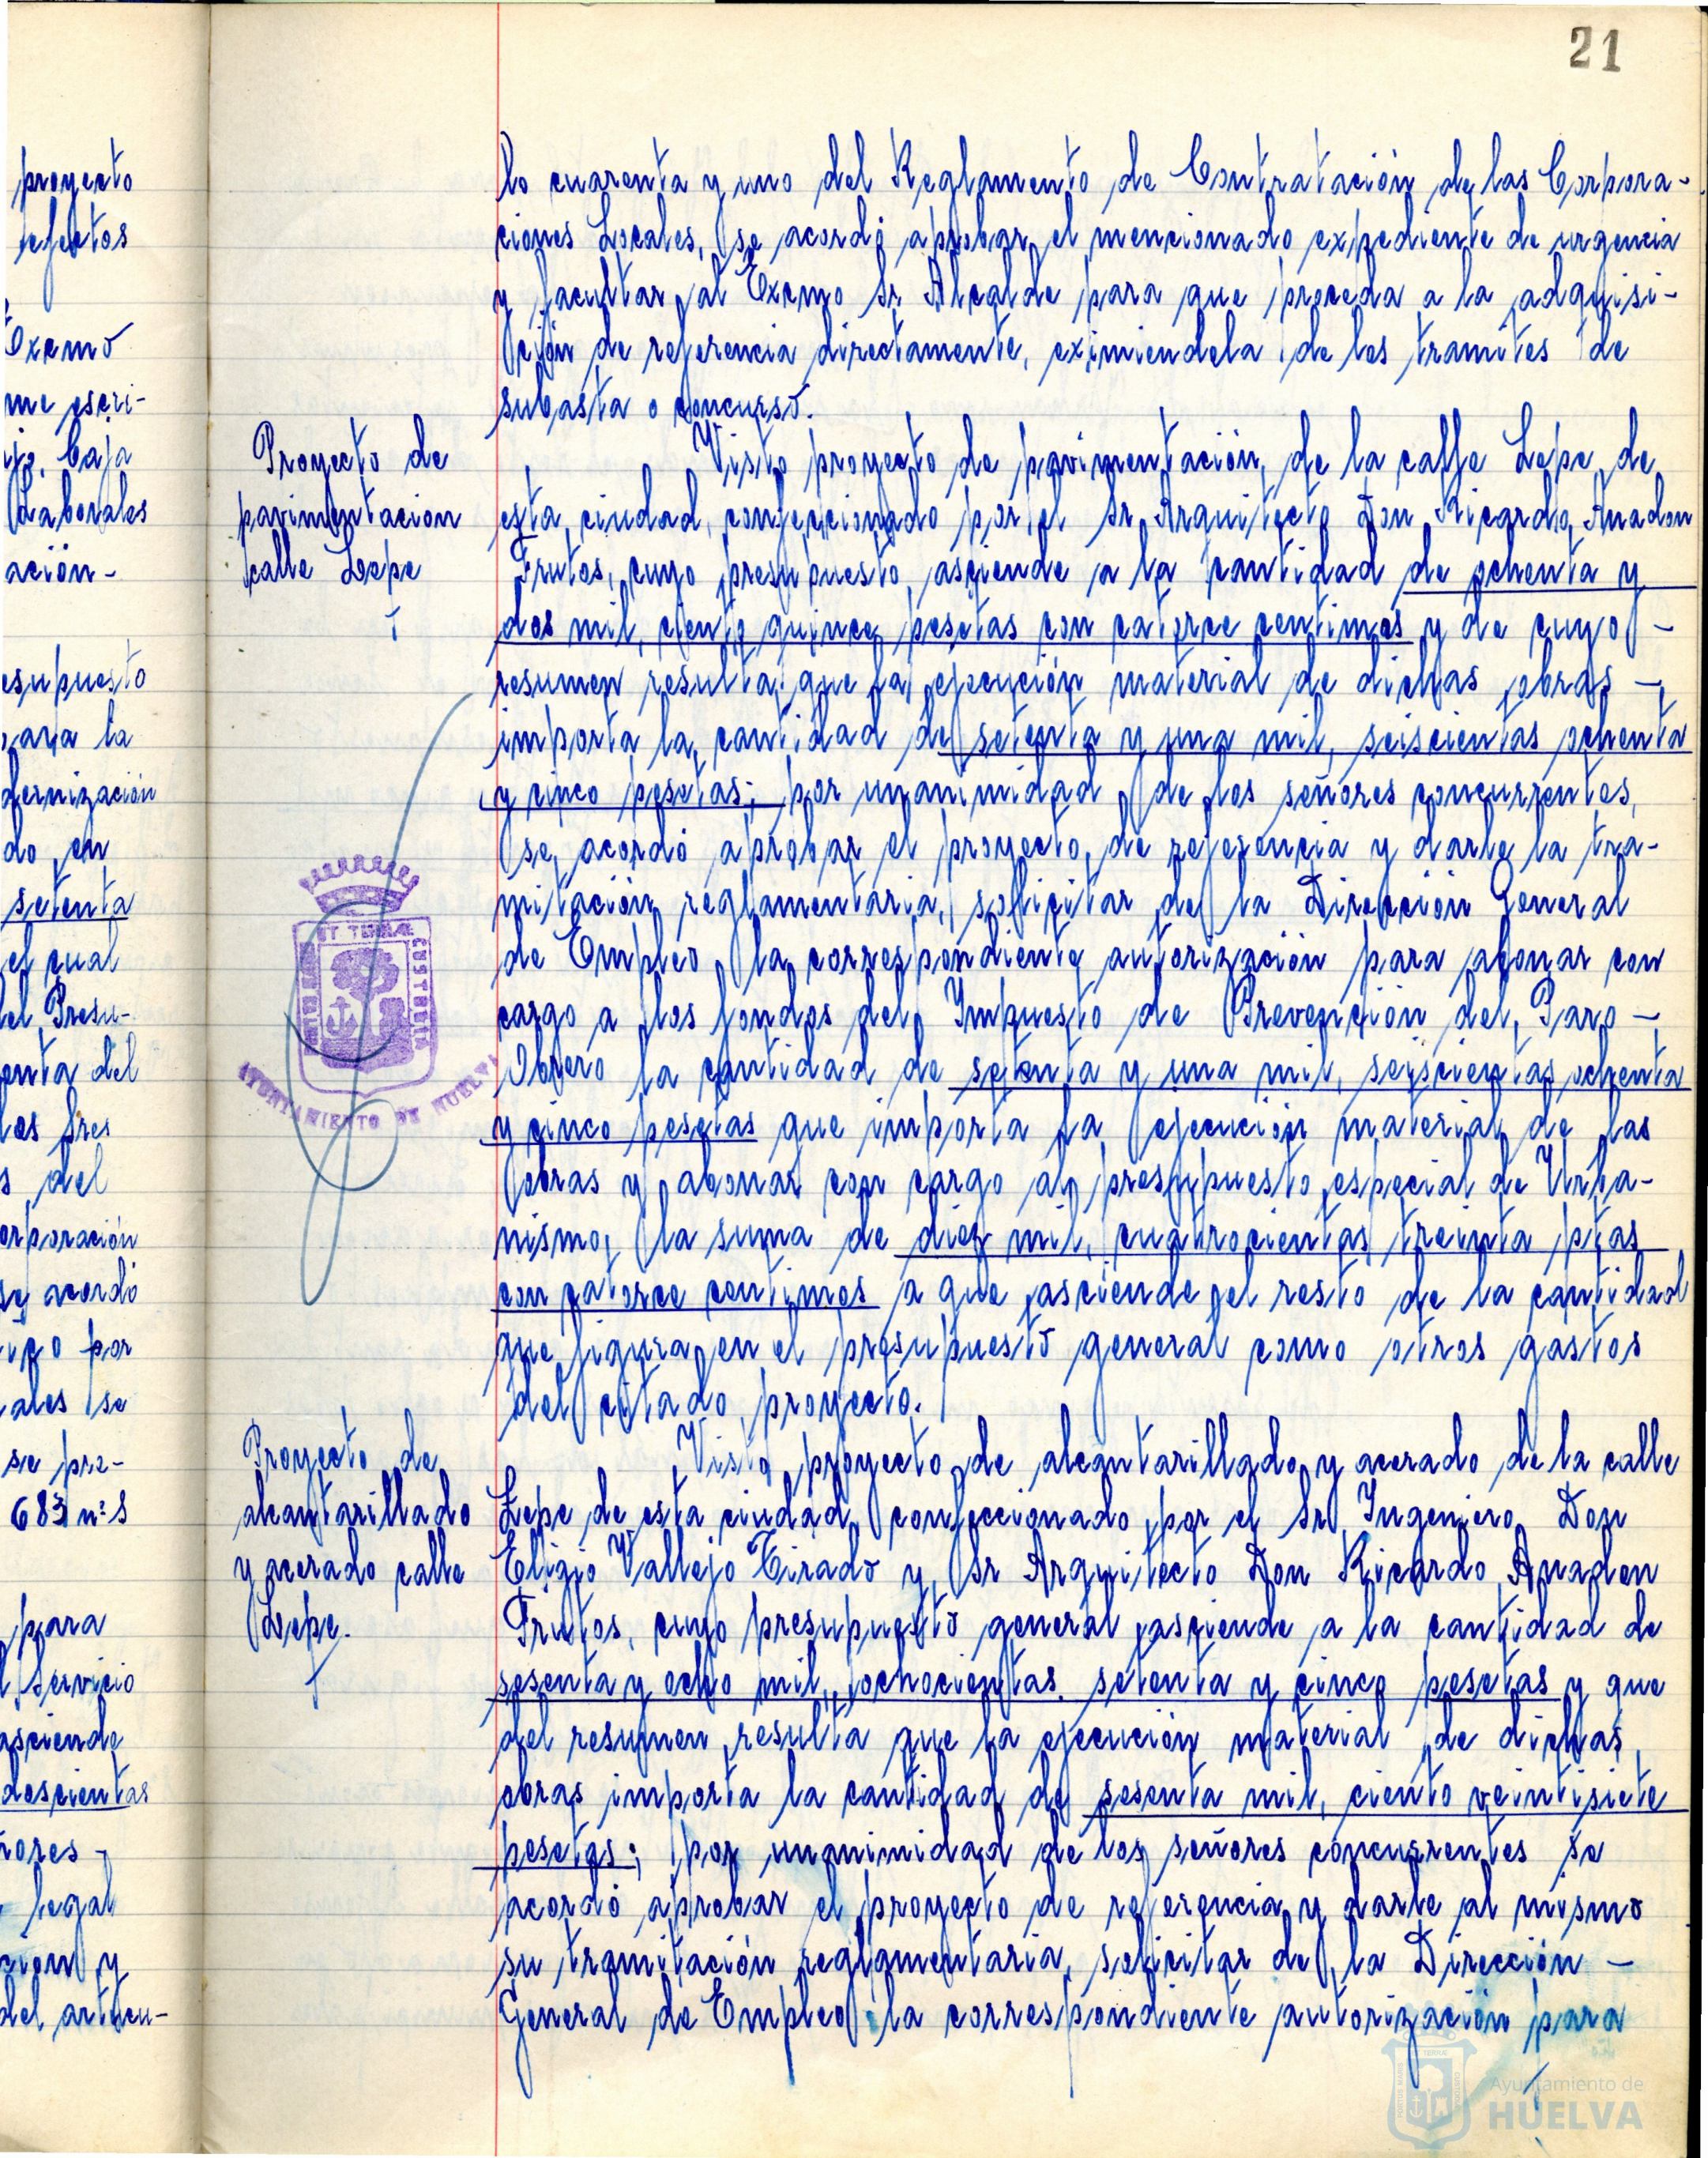 21
proyecto
efectos
Excmo
me escri-
jo, baja
Laborales
ación-
esupuesto
para la
dernización
do en
setenta
el cual
el Presu-
enta del
los Sres
s del
orporación
se acordó
por
ales se
se pre-
683 nº 8
para
l Servicio
asciende
doscientas
ñores -
legal
ción y
del artícu-
lo cuarenta y uno del Reglamento de Contratación de las Corpora-
ciones Locales, se acordó aprobar el mencionado expediente de urgencia
y facultar al Excmo Sr. Alcalde para que proceda a la adquisi-
ción de referencia directamente, eximiendola de los tramites de
subasta o concurso.
Proyecto de
pavimentacion
calle Lepe
Visto proyecto de pavimentación de la calle Lepe de
esta ciudad, confeccionado por el Sr. Arquitecto Don Ricardo Anadon
Frutos, cuyo presupuesto asciende a la cantidad de ochenta y
dos mil, ciento quince pesetas con catorce centimos y de cuyo -
resumen resulta que la ejecución material de dichas obras -
importa la cantidad de setenta y una mil, seiscientas ochenta
y cinco pesetas; por unanimidad de los señores concurrentes,
se acordó aprobar el proyecto de referencia y darle la tra-
mitación reglamentaria, solicitar de la Dirección General
de Empleo la correspondiente autorización para abonar con
cargo a los fondos del Impuesto de Prevención del Paro -
Obrero la cantidad de setenta y una mil, seiscientas ochenta
y cinco pesetas que importa la ejecución material de las
obras y abonar con cargo al presupuesto especial de Urba-
nismo, la suma de diez mil, cuatrocientas treinta ptas
con catorce centimos a que asciende el resto de la cantidad
que figura en el presupuesto general como otros gastos
del citado proyecto.
ET TERRAE
CUSTODIA
AYUNTAMIENTO DE HUELVA
Proyecto de
alcantarillado
y acerado calle
Lepe.
Visto proyecto de alcantarillado y acerado de la calle
Lepe de esta ciudad, confeccionado por el Sr. Ingeniero Don
Eligio Vallejo Tirado y Sr Arquitecto Don Ricardo Anadon
Frutos, cuyo presupuesto general asciende a la cantidad de
sesenta y ocho mil, ochocientas setenta y cinco pesetas y que
del resumen resulta que la ejecución material de dichas
obras importa la cantidad de sesenta mil, ciento veintisiete
pesetas; por unanimidad de los señores concurrentes se
acordó aprobar el proyecto de referencia y darle al mismo
su tramitación reglamentaria, solicitar de la Dirección -
General de Empleo la correspondiente autorización para
Ayuntamiento de
HUELVA